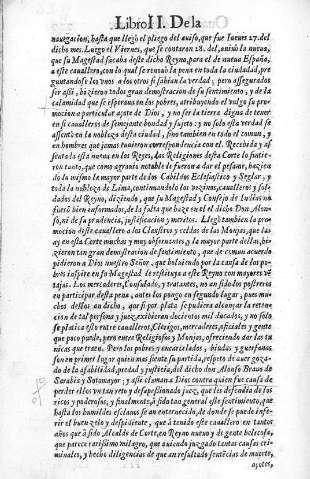 Libro II. De la
nauegacion, hasta que llegò el pliego del auiso, que fue Iueues 27. del
dicho mes. Luego el Viernes, que se contaron 28. del, aniuò la nueua,
que su Magestad sacaua deste dicho Reyno, para el de nueua España,
a este cauallero, con lo qual se renouò la pena en toda la ciudad, pre
guntandose los vnos a los otros si sabian la verdad; pero assegurados
ser assi, hizieron todos gran demostracion de su sentimiento, y de la
calamidad que se esperaua en los pobres, atribuyendo el vulgo su pro
mocion a particular açote de Dios, y no ser la tierra digna de tener
en si caualleros de semejante bondad, y sujeto: y no solo esta verdad se
assentò en la nobleza desta ciudad, sino tambien en todo el comun, y
en hombres que jamas tuuieron correspondencia con el. Recebida y as
sentada esta nueua en los Reyes, las Religiones desta Corte lo sintie
ron tanto, que como agrauio notable le fueron a dar el pesame, hazien
do lo mismo la mayor parte de los Cabildos Eclesiastico y Seglar, y
toda la nobleza de Lima, continuandolo los vezinos, caualleros y sol-
dados del Reyno, diziendo, que su Magestad y Consejo de Indias no
fuerõ bien informados, de la falta que haze en el dicho Don Alon
so, ni de su prudencia, justificacion y meritos. Llegò tambien la pro
mocion deste cauallero a los Claustros y celdas de las Monjas, que las
ay en esta Corte muchas y muy obseruantes, y la mayor parte dellas, hi-
zieron tan gran demostracion de sentimiento, que de comun acuerdo
pidieron a Dios nuestro Señor, que boluiendo por la causa de sus po-
bres inspire en su Magestad le restituya a este Reyno con mayores vē
tajas. Los mercaderes, Consulado, y tratantes, no an sido los postreros
en participar desta pena, antes los pongo en segundo lugar, pues mu-
chos dellos an dicho, que si por plata se pudiera alcançar la reten-
cion de tal persona y juez, exibieran docientos mil ducados, y no solo
se platica esto entre caualleros, Clerigos, mercaderes, oficiales y gente
que poco puede, pero entre Religiosos y Monjas, ofreciendo dar las tu
nicas que traen. Pero los pobres y encarcelados, biudas y guerfanos,
son en primer lugar quien mas siente su partida, respeto de auer goza-
do de la afabilidad, piedad y justicia, del dicho don Alonso Brauo de
Sarabia y Sotomayor; y assi claman a Dios contra quien fue causa de
perder ellos vn tan reto y desapassionado juez, que les defendia de los
ricos y poderosos, y finalmente, à sido tan general este sentimiento, que
hasta los humildes esclauos se an enternecido, de donde se puede infe-
rir el buen zelo y despidiente, que à tenido este cauallero en tantos
años que à sido Alcalde de Corte, en Reyno nueuo y de gente belicosa,
que parece rarissimo milagro, que auiendo juzgado tantas causas cri-
minales, y hecho diligencias de que an resultado sentencias de muerte,
açotes,